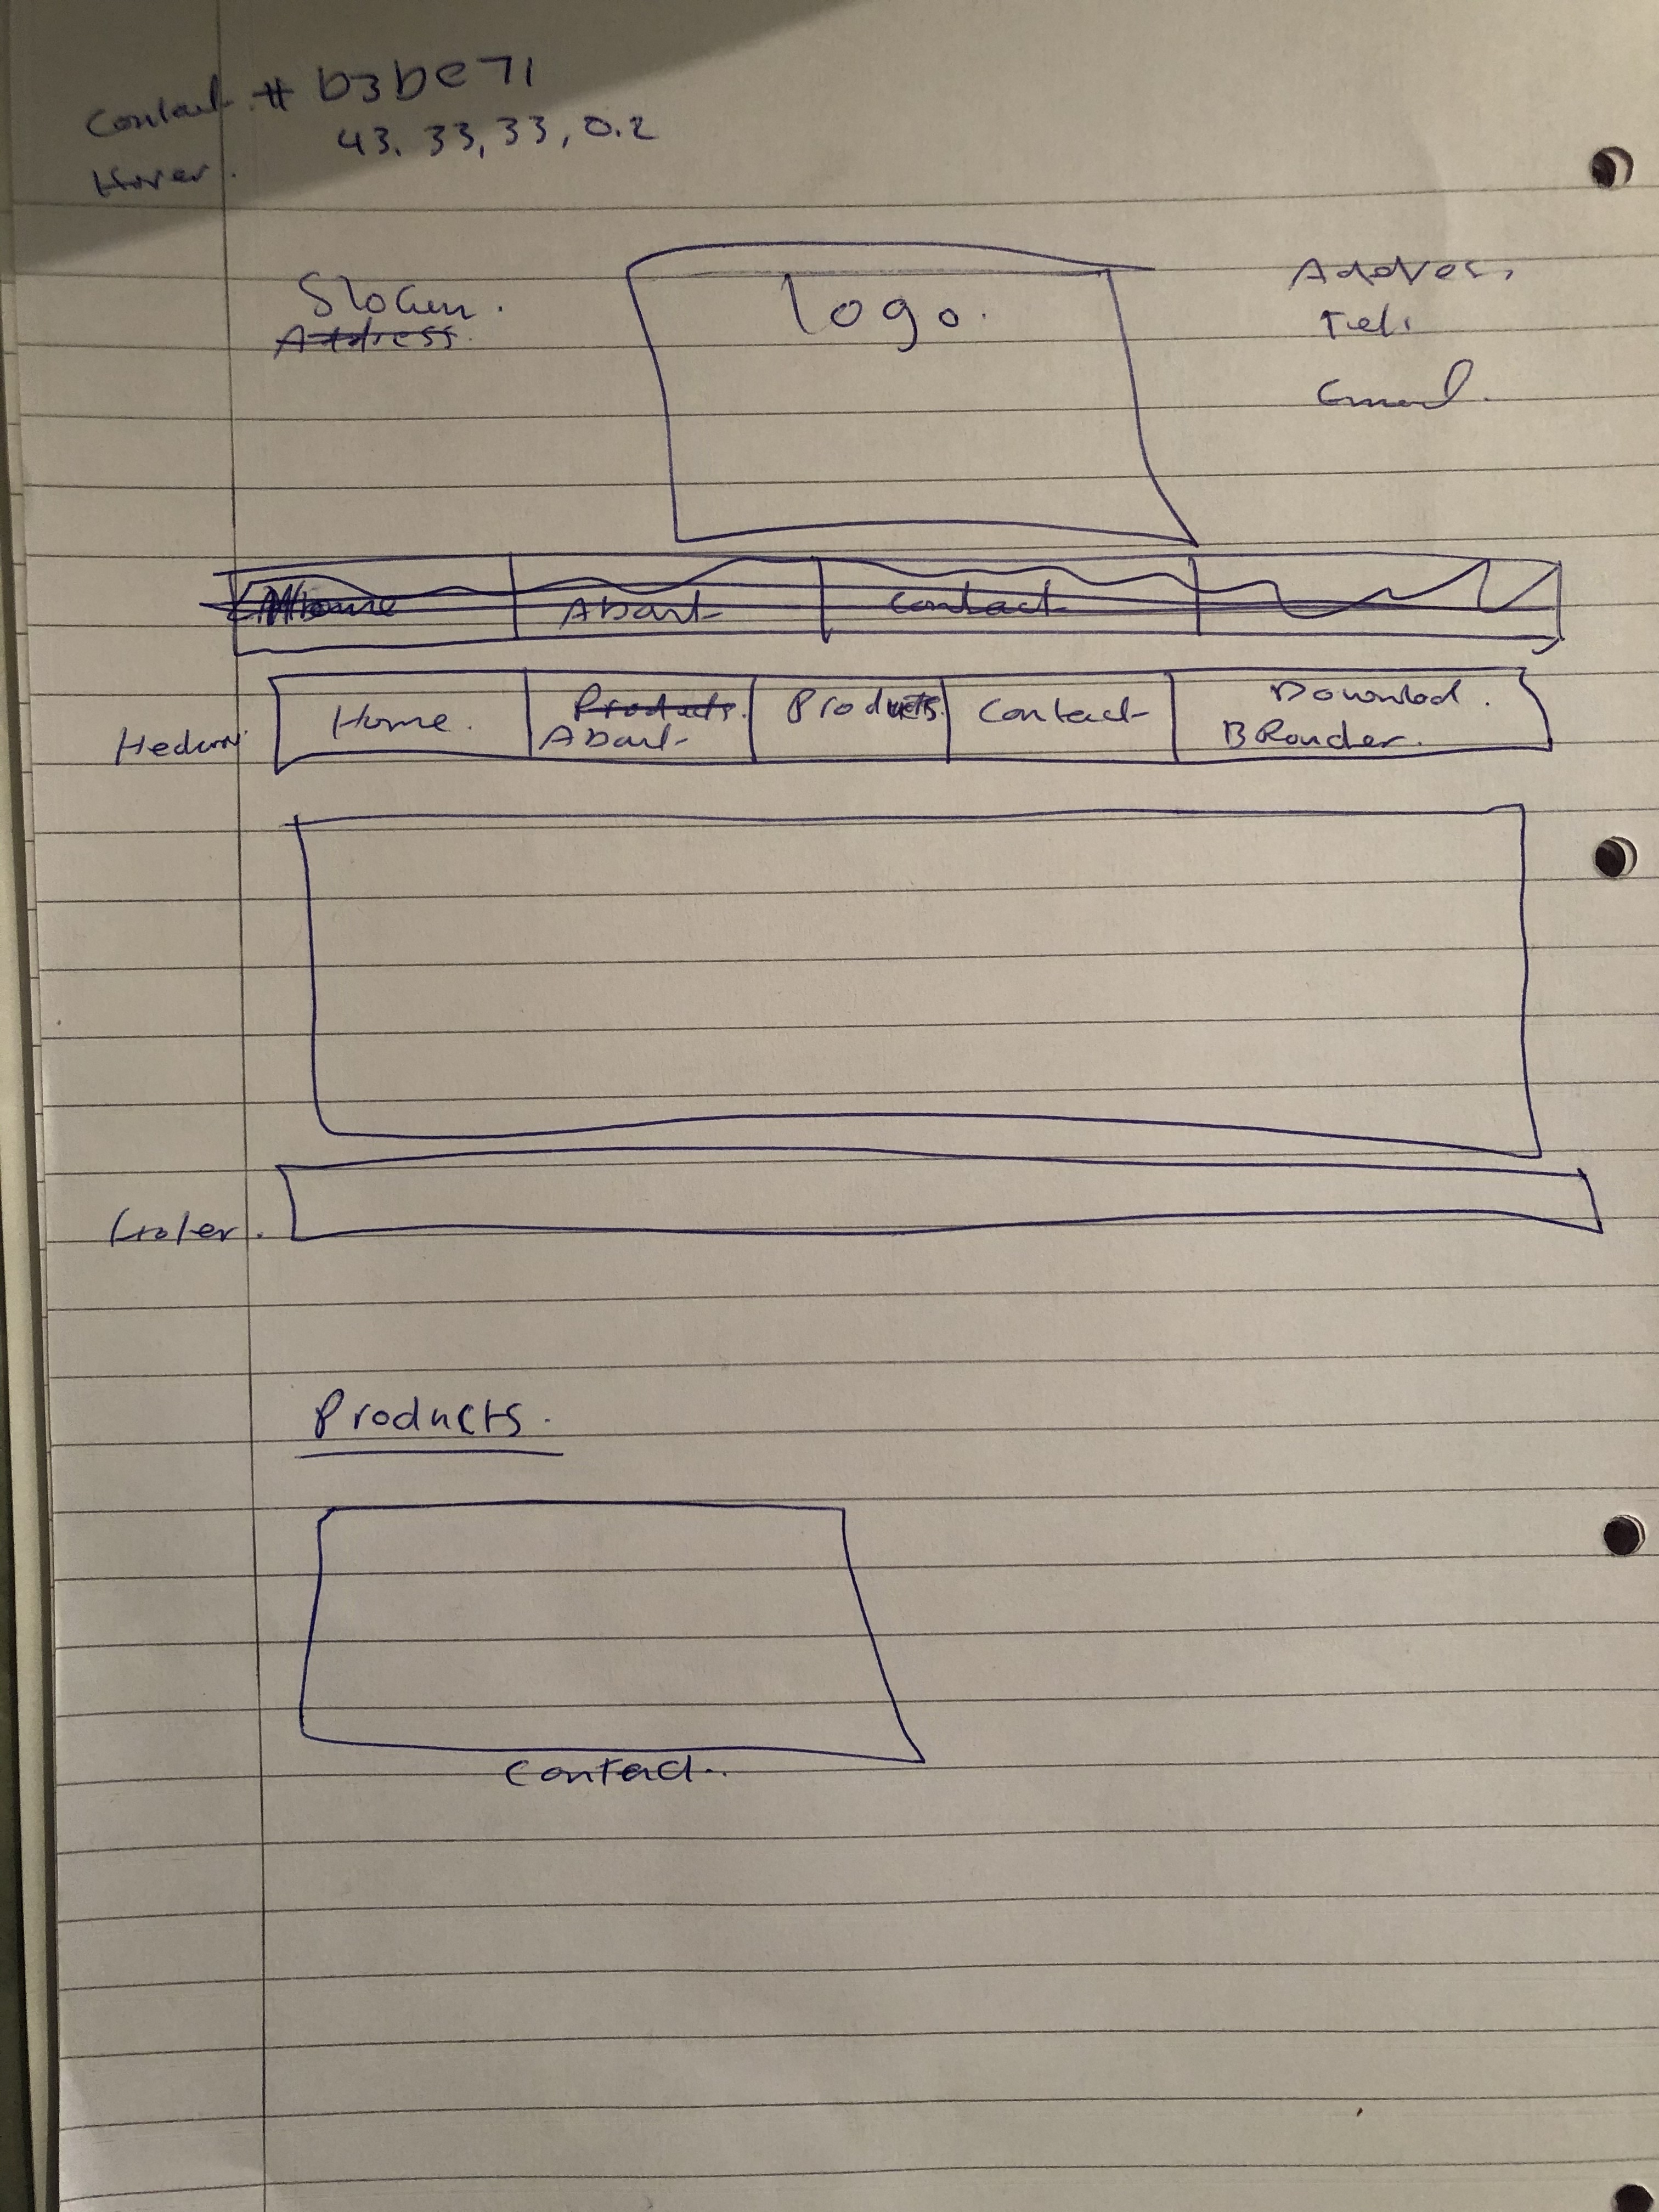 Contact # b3be71
43. 33, 33, 0.2
Hover.
Slogen.
Address.
logo.
Addres,
Tel.
Email.
Home
About
Contact
Home.
Products.
About
Products
Contact
Download.
BRoucher.
Products.
Contact..